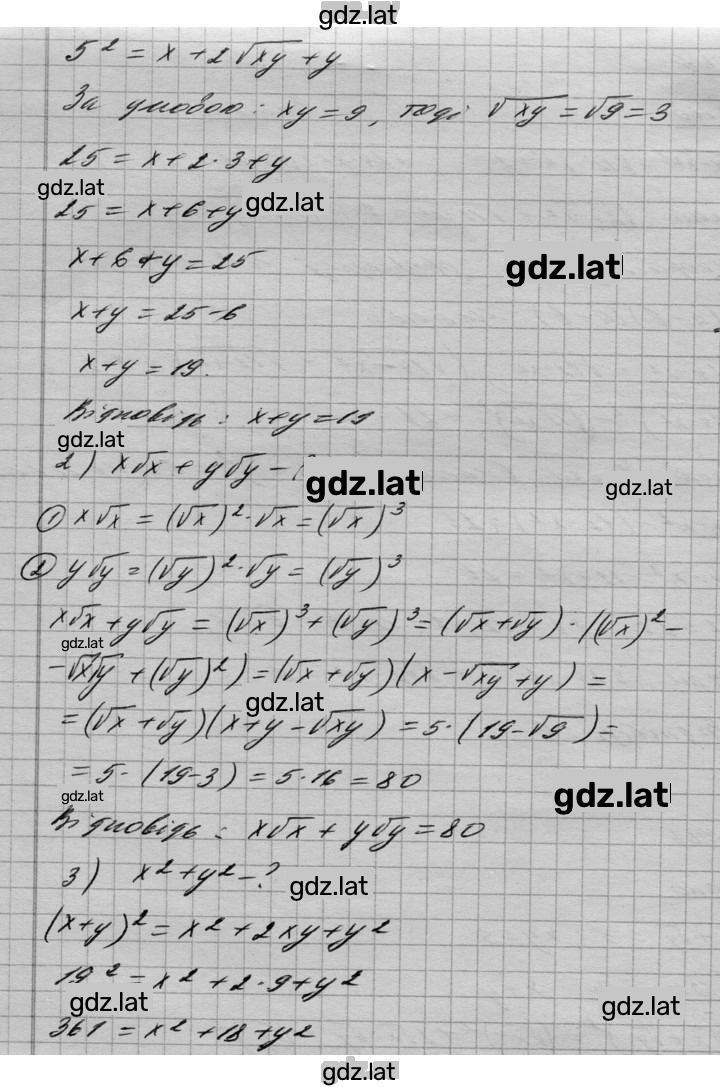 gdz.lat
5² = x + 2√xy + y
За умовою: xy = 9, тоді √xy = √9 = 3
25 = x + 2·3 + y
gdz.lat
25 = x + 6 + y
gdz.lat
x + 6 + y = 25
gdz.lat
x + y = 25 - 6
x + y = 19.
Відповідь: x + y = 19
gdz.lat
2) x√x + y√y -
gdz.lat
gdz.lat
① x√x = (√x)² · √x = (√x)³
② y√y = (√y)² · √y = (√y)³
x√x + y√y = (√x)³ + (√y)³ = (√x + √y) · ((√x)² -
gdz.lat
- √x√y + (√y)²) = (√x + √y)(x - √xy + y) =
gdz.lat
= (√x + √y)(x + y - √xy) = 5 · (19 - √9) =
= 5 · (19 - 3) = 5 · 16 = 80
gdz.lat
gdz.lat
Відповідь: x√x + y√y = 80
3) x² + y² - ?
gdz.lat
(x + y)² = x² + 2xy + y²
19² = x² + 2·9 + y²
gdz.lat
gdz.lat
361 = x² + 18 + y²
gdz.lat